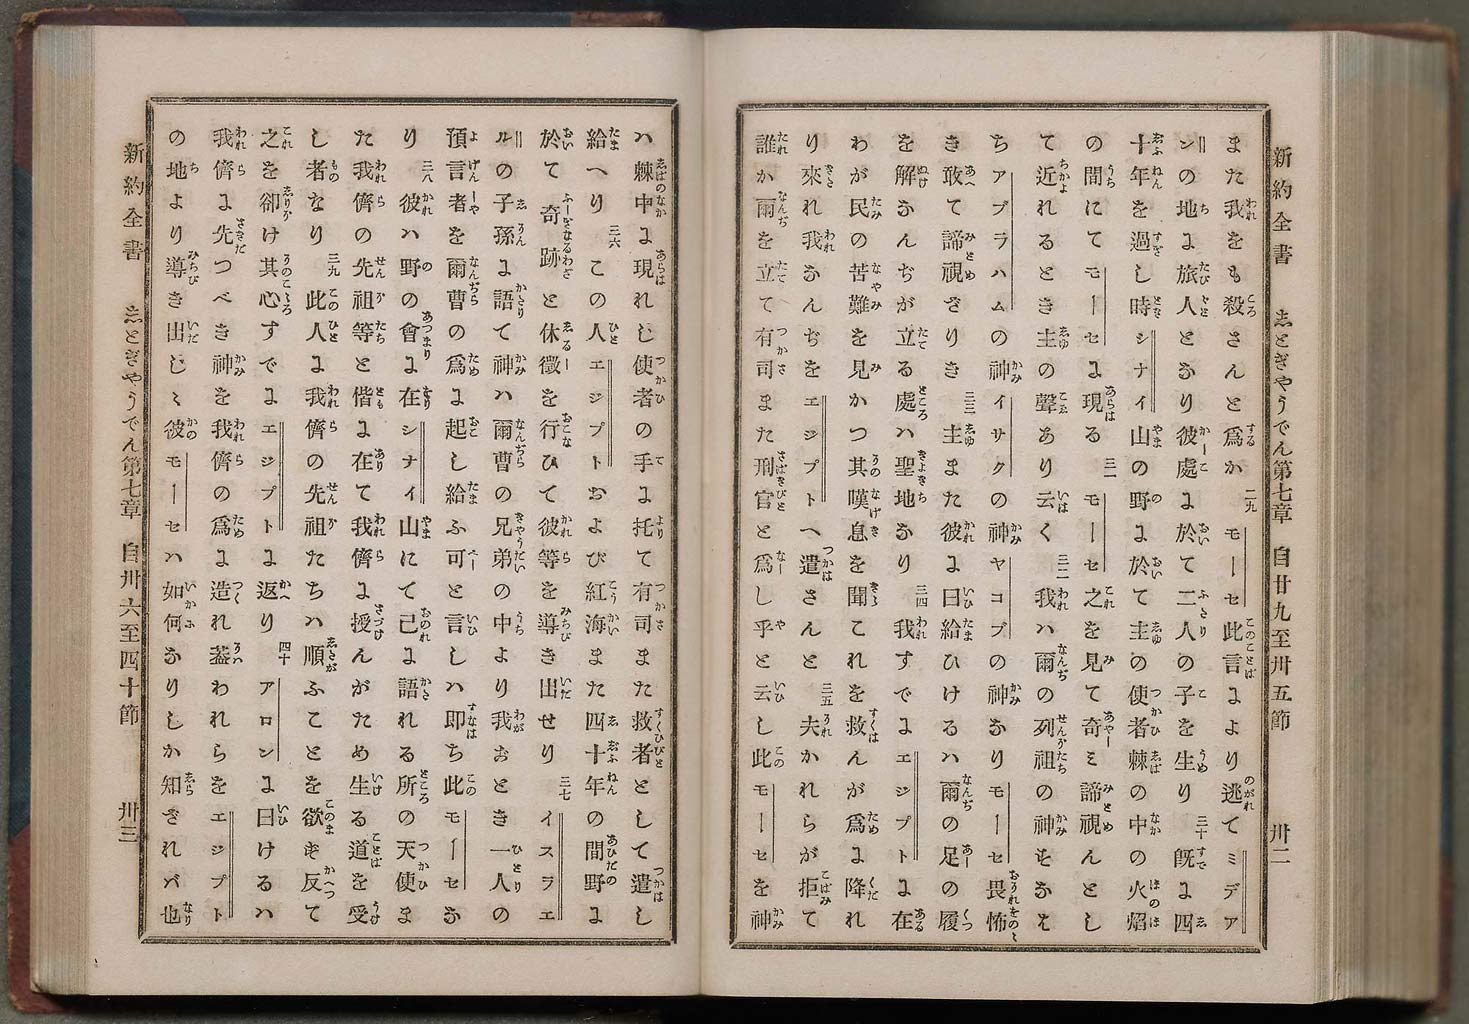 新約全書 志とぎやうでん第七章 自廿九至卅五節 卅二
また我をも殺さんと爲か 二九 モーセ此言によより逃てミデア
ンの地に旅人となり彼處に於て二人の子を生り 三十 旣に四
十年を過し時シナイ山の野に於て主の使者棘の中の火焰
の間にてモーセに現る 三一 モーセ之を見て奇ミ諦視んとし
て近れるとき主の聲あり云く 三二 我ハ爾の列祖の神すなは
ちアブラハムの神イサクの神ヤコブの神なりモーセ畏怖
き敢て諦視ざりき 三三 主また彼に曰給ひけるハ爾の足の履
を解なんぢが立る處ハ聖地なり 三四 我すでにエジプトに在
わが民の苦難を見かつ其嘆息を聞これを救んが爲に降れ
り來れ我なんぢをエジプトへ遣さんと 三五 夫かれらが拒て
誰か爾を立て有司また刑官と爲し乎と云し此モーセを神
ハ棘中に現れし使者の手に托て有司また救者として遣し
給へり 三六 この人エジプトおよび紅海また四十年の間野に
於て奇跡と休徵を行ひて彼等を導き出せり 三七 イスラエ
ルの子孫に語て神ハ爾曹の兄弟の中より我おとき一人の
預言者を爾曹の爲に起し給ふ可と言しハ卽ち此モーセな
り 三八 彼ハ野の會に在シナイ山にて己に語れる所の天使ま
た我儕の先祖等と偕に在て我儕に授んがため生る道を受
し者なり 三九 此人に我儕の先祖たちハ順ふことを欲ず反て
之を卻け其心すでにエジプトに返り 四十 アロンに曰けるハ
我儕に先つべき神を我儕の爲に造れ蓋われらをエジプト
の地より導き出しゝ彼モーセハ如何なりしか知ざれバ也
新約全書 志とぎやうでん第七章 自卅六至四十節 卅三